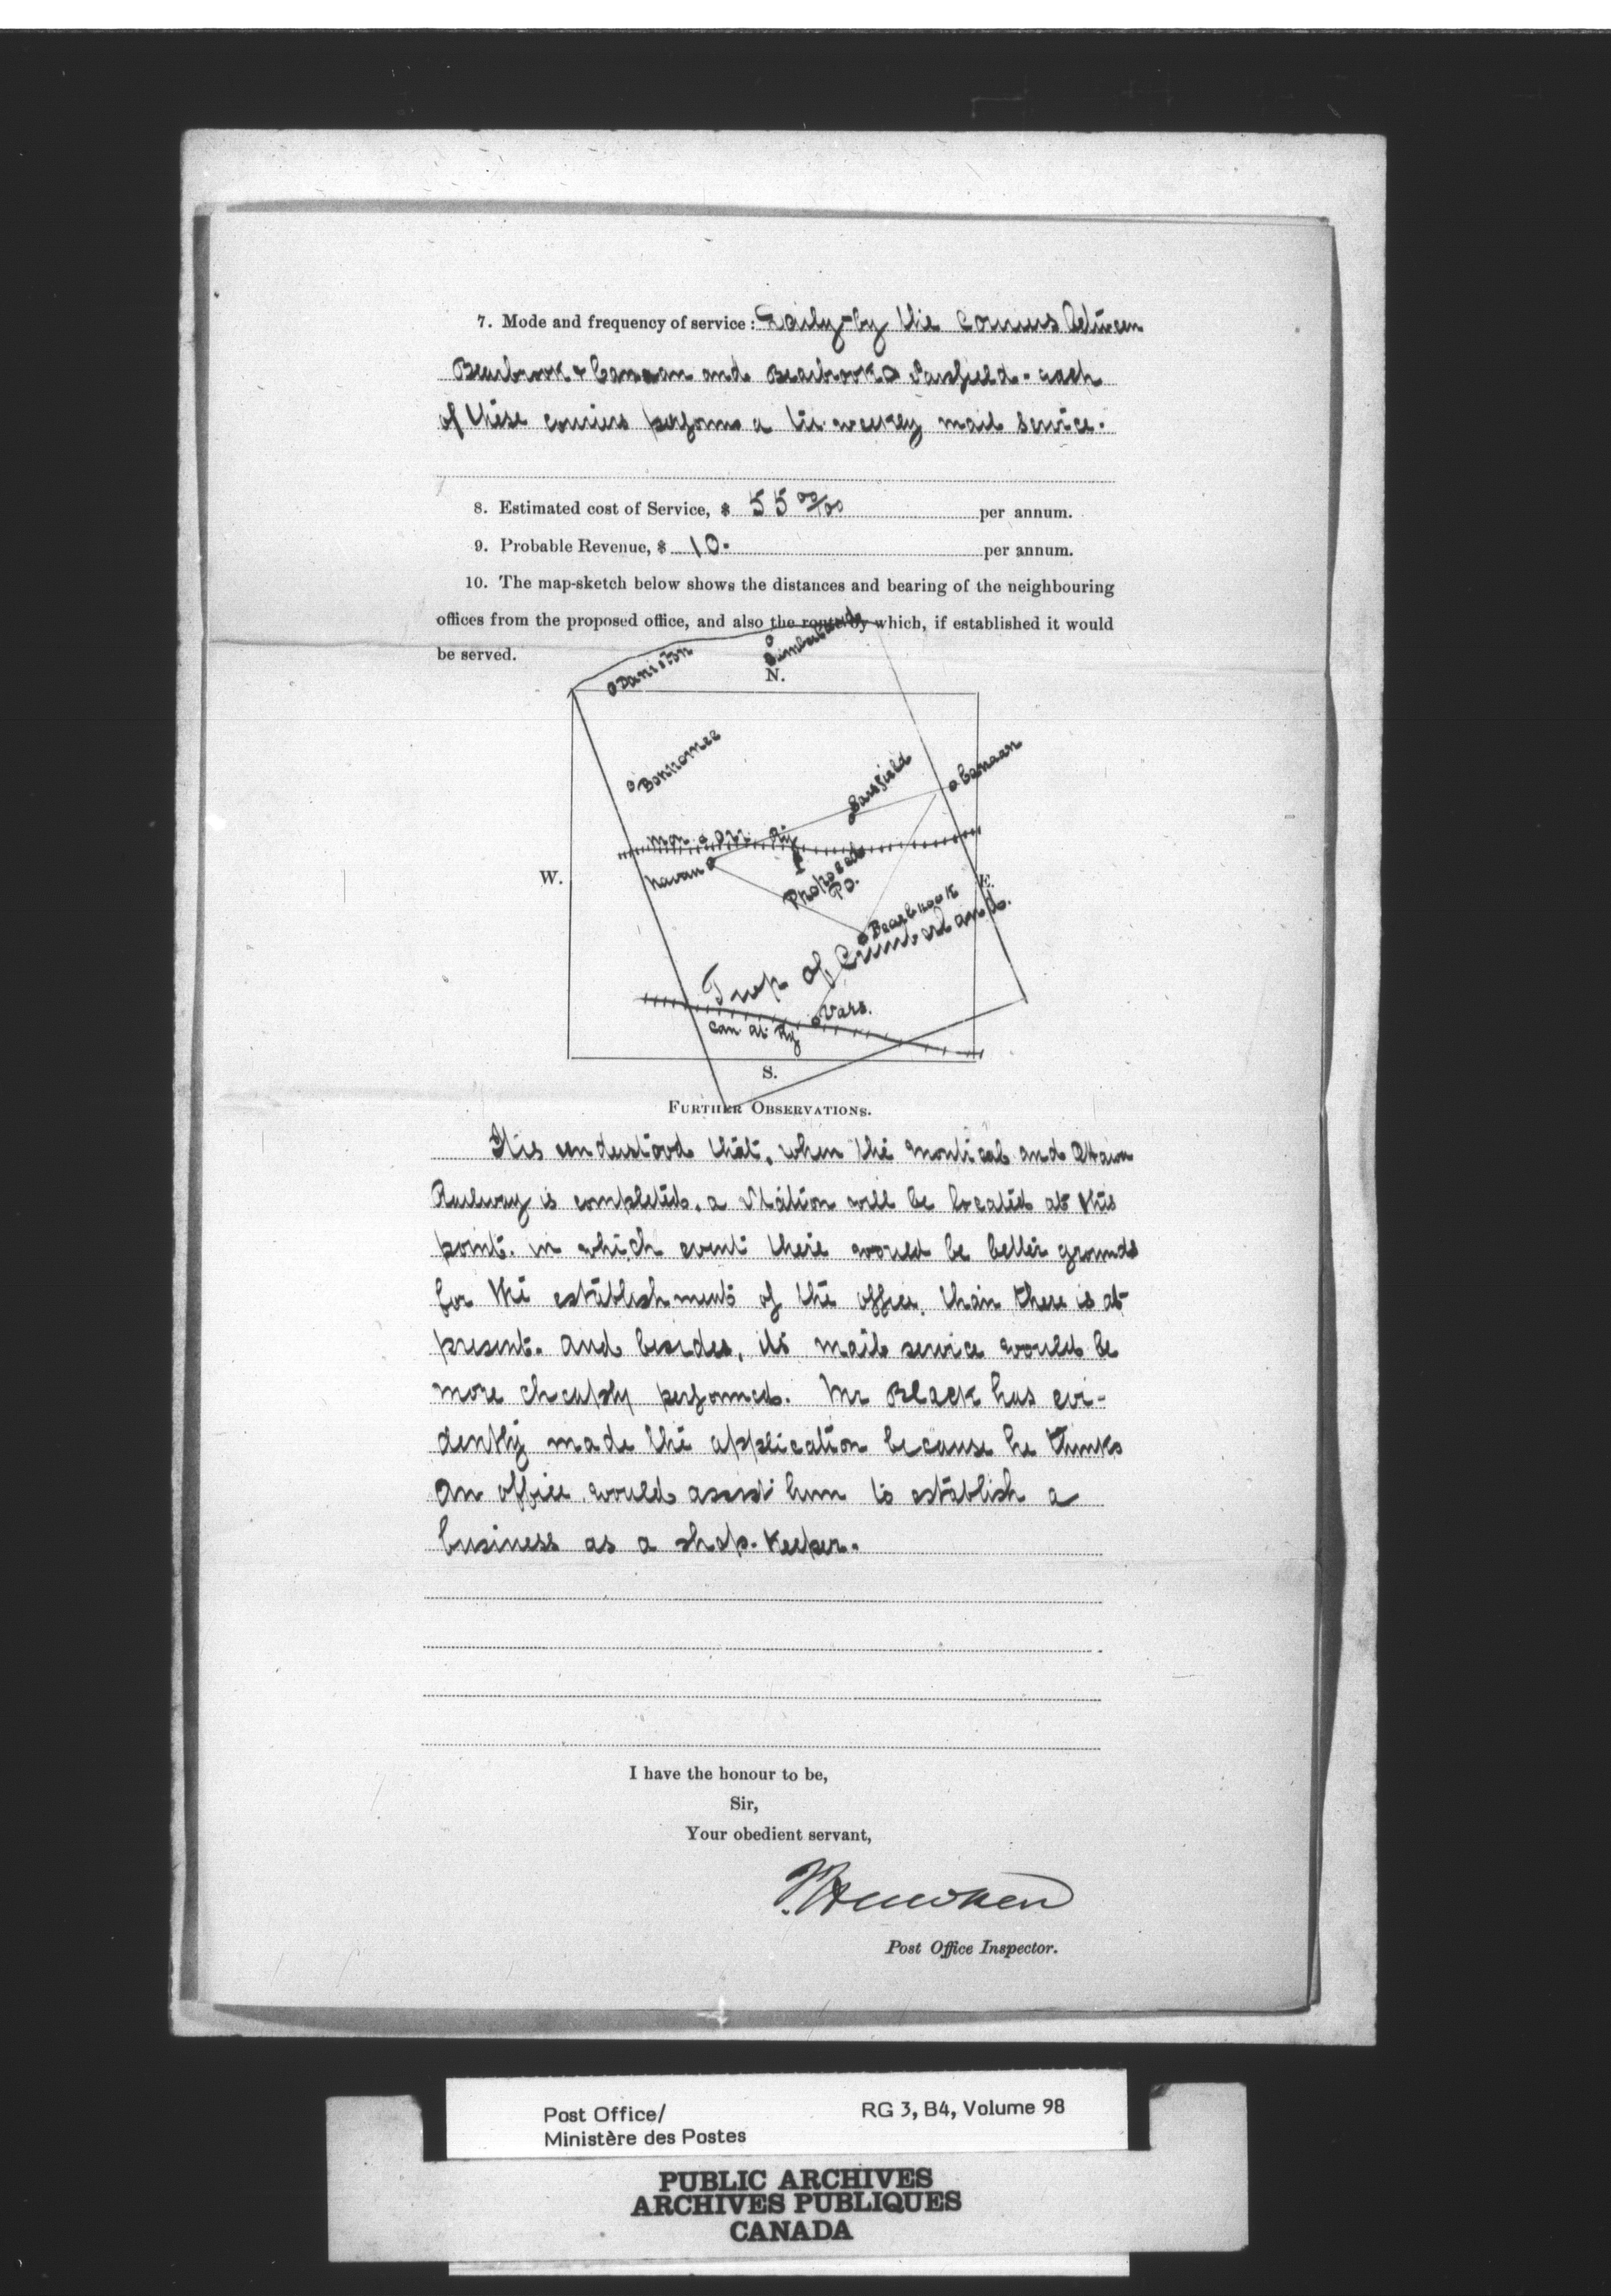 7. Mode and frequency of service: Daily - by the Couriers between
Bearbrook & Canaan and Bearbrook & Sarsfield - each
of these couriers performs a tri-weekly mail service.
8. Estimated cost of Service, $ 55 00/00 per annum.
9. Probable Revenue, $ 10. per annum.
10. The map-sketch below shows the distances and bearing of the neighbouring
offices from the proposed office, and also the route by which, if established it would
be served.
Cumberland
Daniston
N.
Bonnomee
Sarsfield
Canaan
Mon & Ott. Ry
W.
Navan
Proposed
P.O.
E.
Bearbrook
Twp of Cumberland.
Vars.
Can At Ry
S.
FURTHER OBSERVATIONS.
It is understood that, when the Montreal and Ottawa
Railway is completed, a Station will be located at this
point. in which event there would be better grounds
for the establishment of the office, than there is at
present. and besides, its mail service would be
more cheaply performed. Mr Black has evi-
dently made the application because he thinks
an office would assist him to establish a
business as a shop-keeper.
I have the honour to be,
Sir,
Your obedient servant,
Post Office Inspector.
Post Office/
Ministère des Postes
RG 3, B4, Volume 98
PUBLIC ARCHIVES
ARCHIVES PUBLIQUES
CANADA